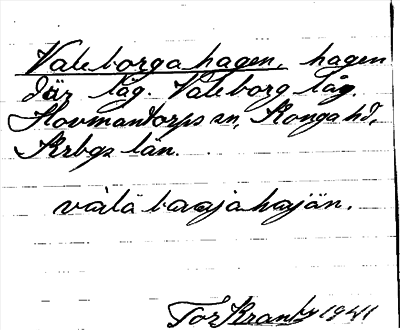 Valeborga hagen, hagen
där låg. Valeborg låg.
Hovmantorps sn, Konga hd,
Krbgs län.
válä baaja hajän.
Tor Kranby 1941